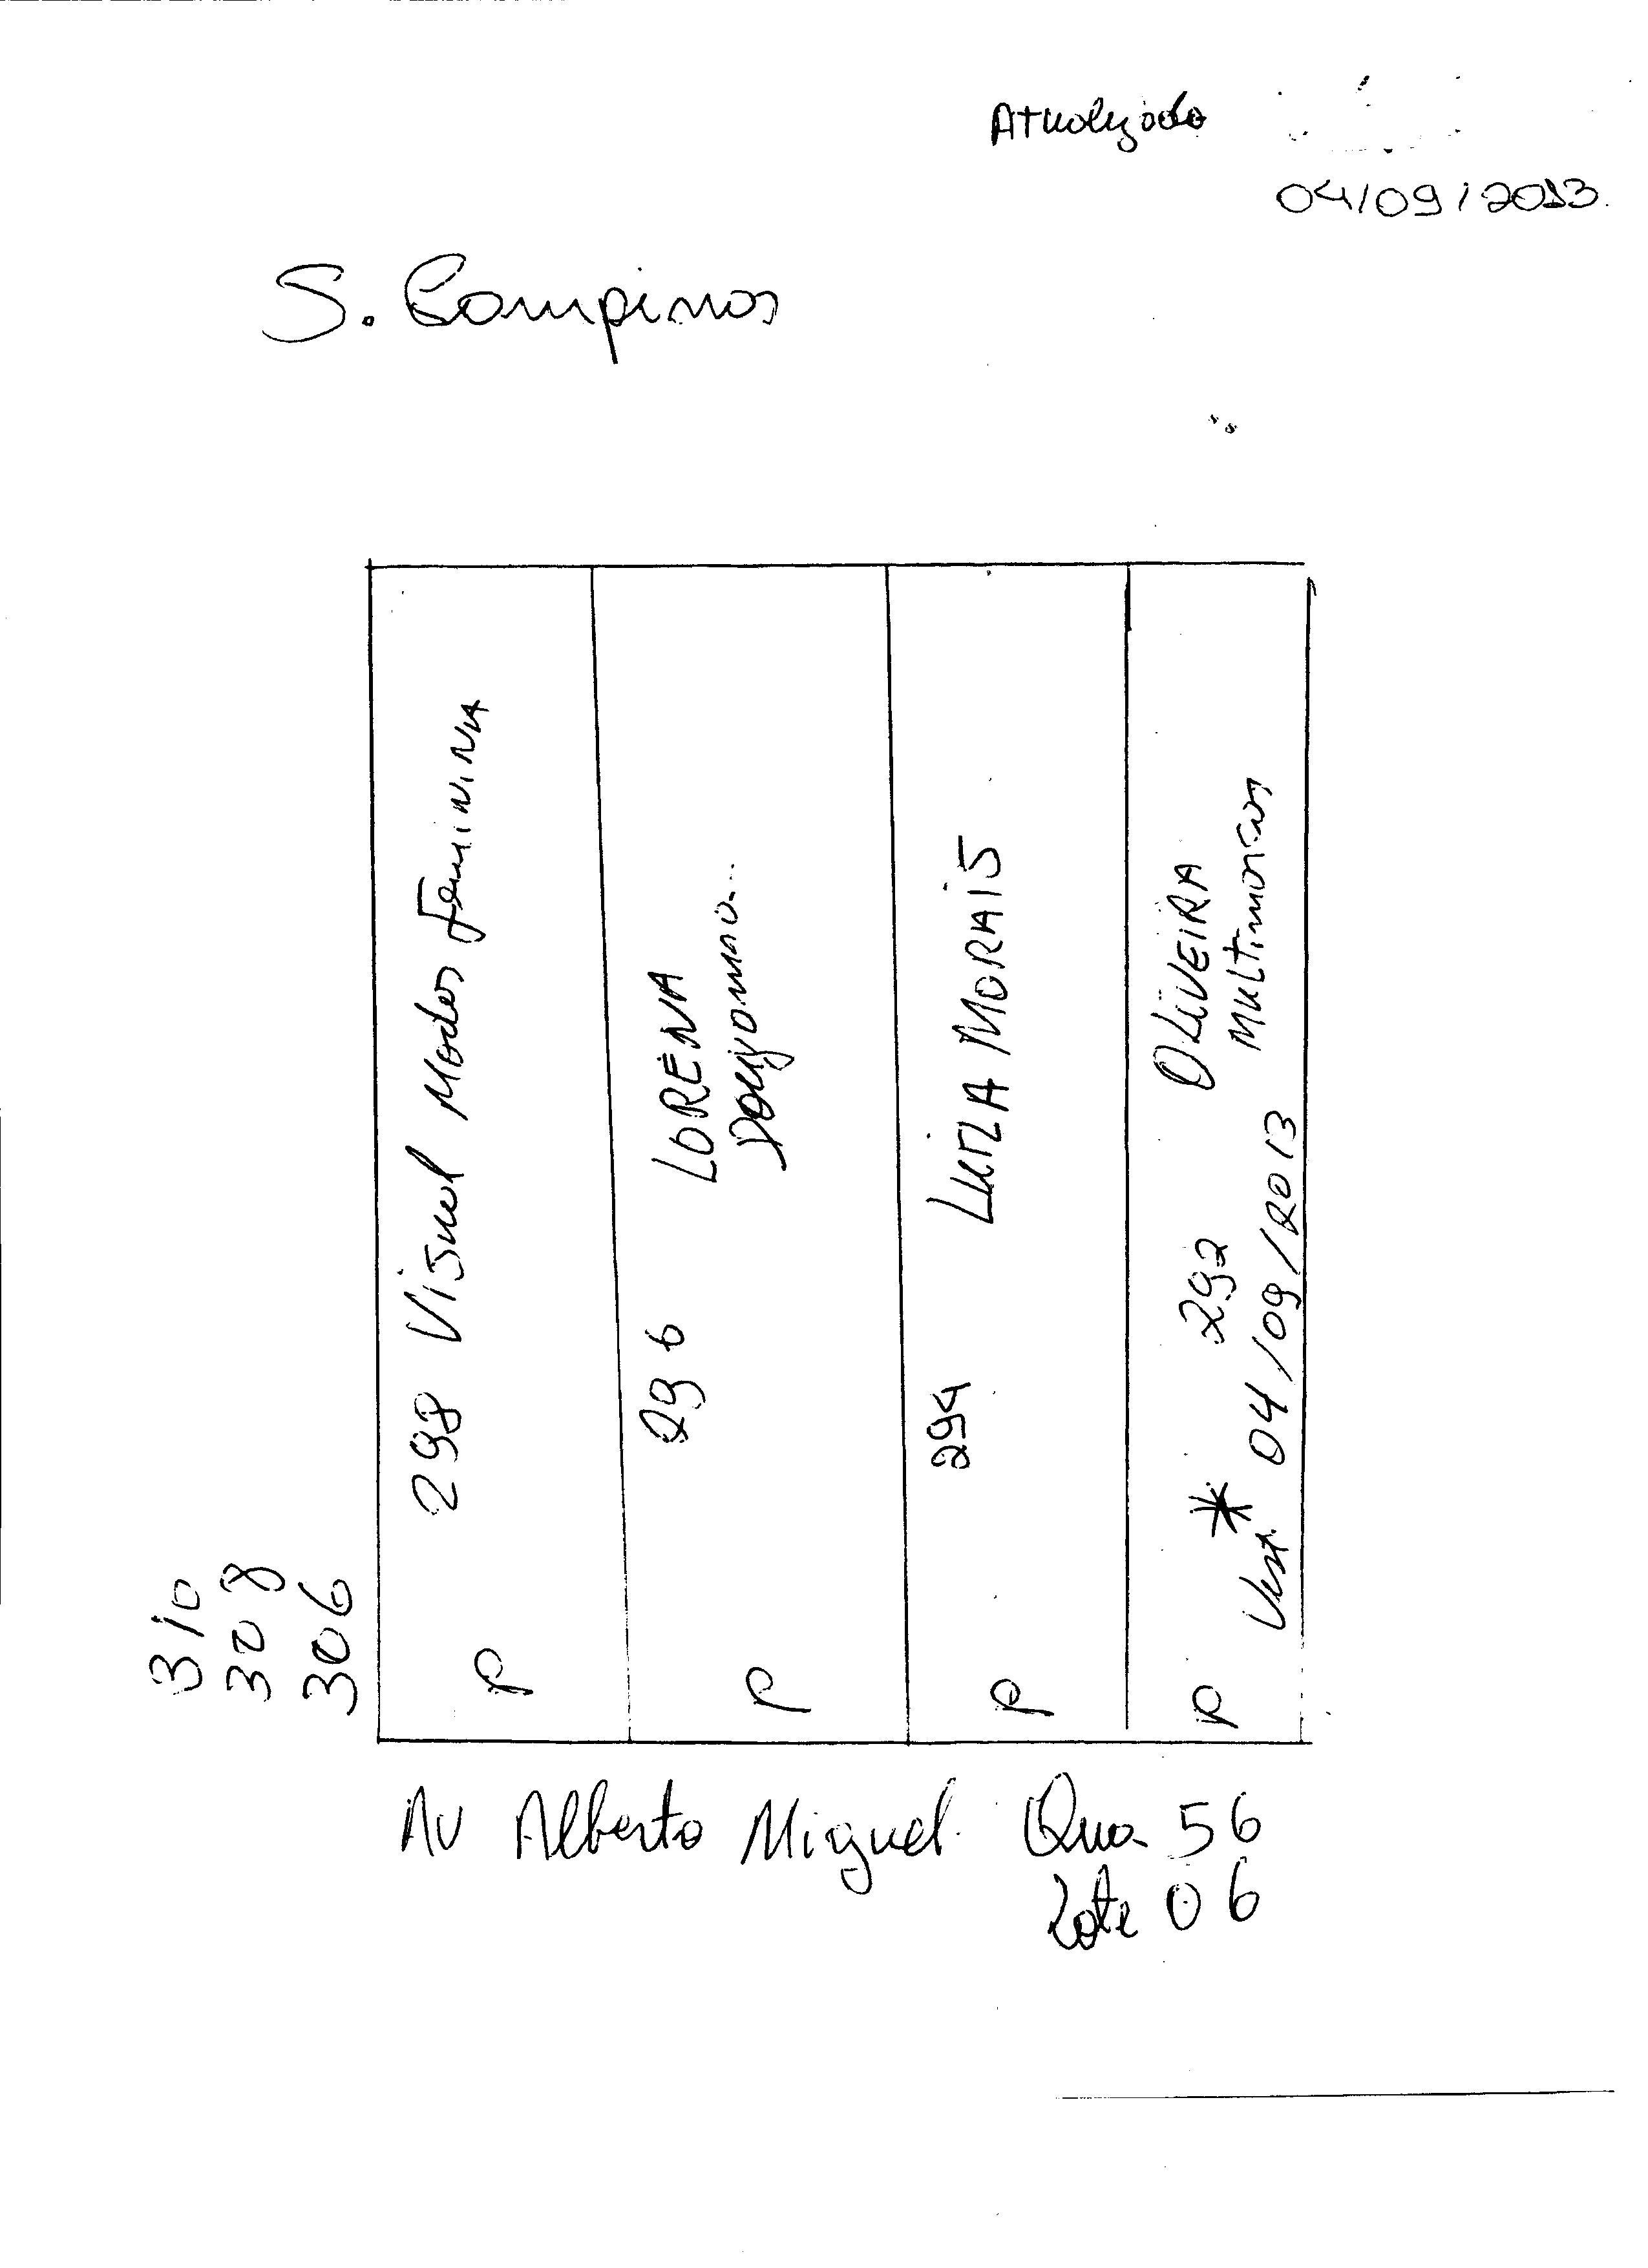 Atualizado
04/09/2013.
S. Campinas
310
308
306
298 Visual Modas Feminina
P
296 LORENA
P
294 LUIZA MORAIS
P
292 OLIVEIRA
Multimarcas
P
Vest* 04/09/2013
Av Alberto Miguel Qua 56
Lote 06